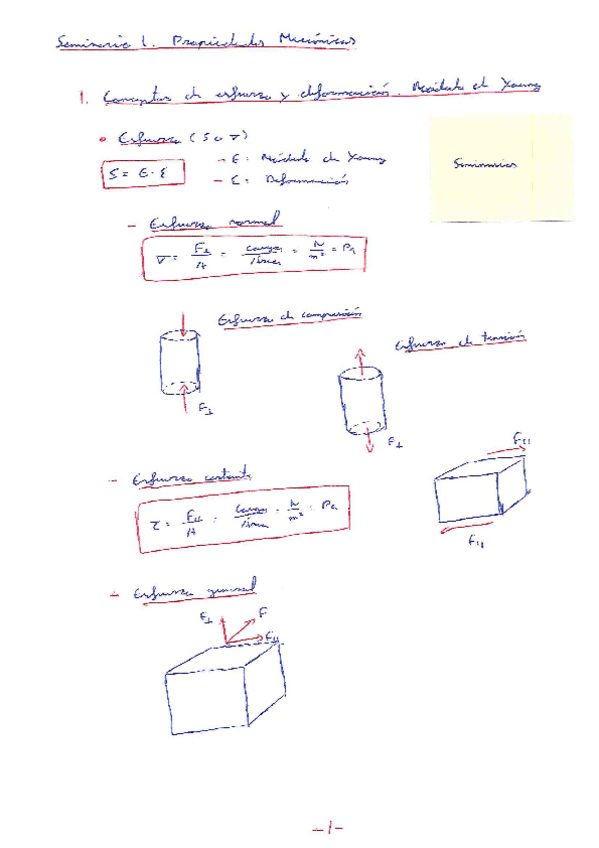 Seminario 1. Propiedades Mecánicas
1. Conceptos de esfuerzo y deformación. Módulo de Young
• Esfuerzo (S o σ)
S = E · ε
- E: Módulo de Young
- ε: Deformación
Seminarios
- Esfuerzo normal
σ = F⊥/A = carga/área = N/m² = Pa
Esfuerzo de compresión
F⊥
Esfuerzo de tensión
F⊥
- Esfuerzo cortante
τ = F∥/A = carga/área = N/m² = Pa
F∥
F∥
- Esfuerzo general
F⊥ F
F∥
-1-